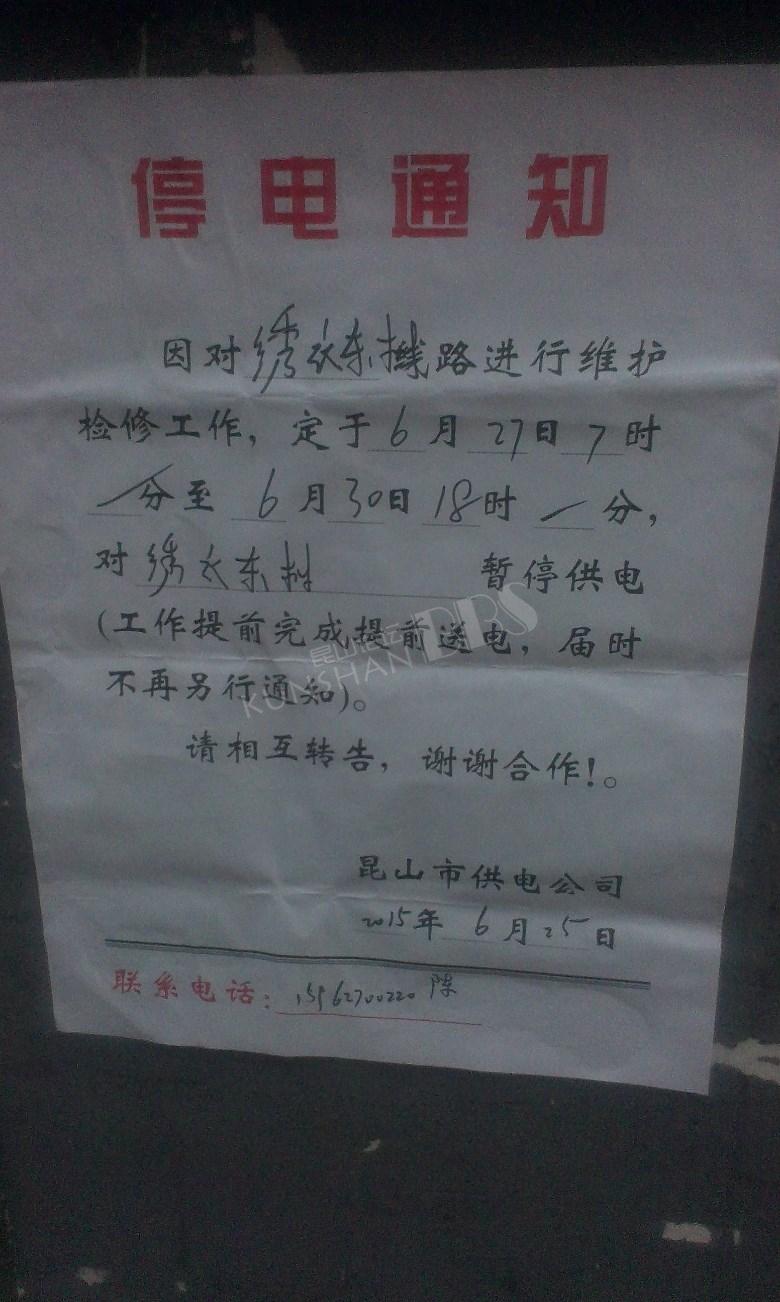 停电通知
因对绣衣东村线路进行维护
检修工作，定于6月27日7时
/分至6月30日18时/分，
对绣衣东村 暂停供电
(工作提前完成提前送电，届时
不再另行通知)。
请相互转告，谢谢合作!。
昆山市供电公司
2015年6月25日
联系电话：15962700220 陈
昆山论坛
KUNSHAN BBS